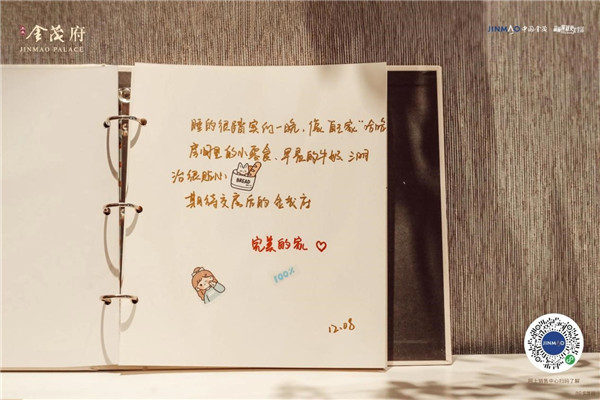 金茂府
JINMAO PALACE
JINMAO 中国金茂
睡的很踏实的一晚，像 家"哈哈
房间里的小零食、早晨的牛奶 三明
治很贴心
BREAD
期待交房后的金茂府
完美的家 ♡
100%
12.08
JINMAO